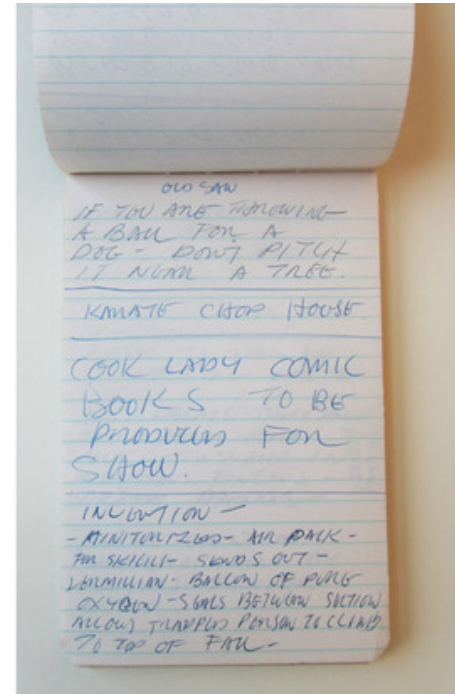 OLD SAW
IF YOU ARE THROWING
A BALL FOR A
DOG - DON'T PITCH
IT NEAR A TREE.
KARATE CHOP HOUSE
COOK LADY COMIC
BOOKS TO BE
PRODUCED FOR
SHOW.
INVENTION -
- MINITURIZED - AIR PACK -
FOR SKIING - SENDS OUT -
VERMILLIAN - BALLON OF PURE
OXYGEN - SEALS BETWEEN SUCTION
ALLOWS TRAPPED PERSON TO CLIMB
TO TOP OF